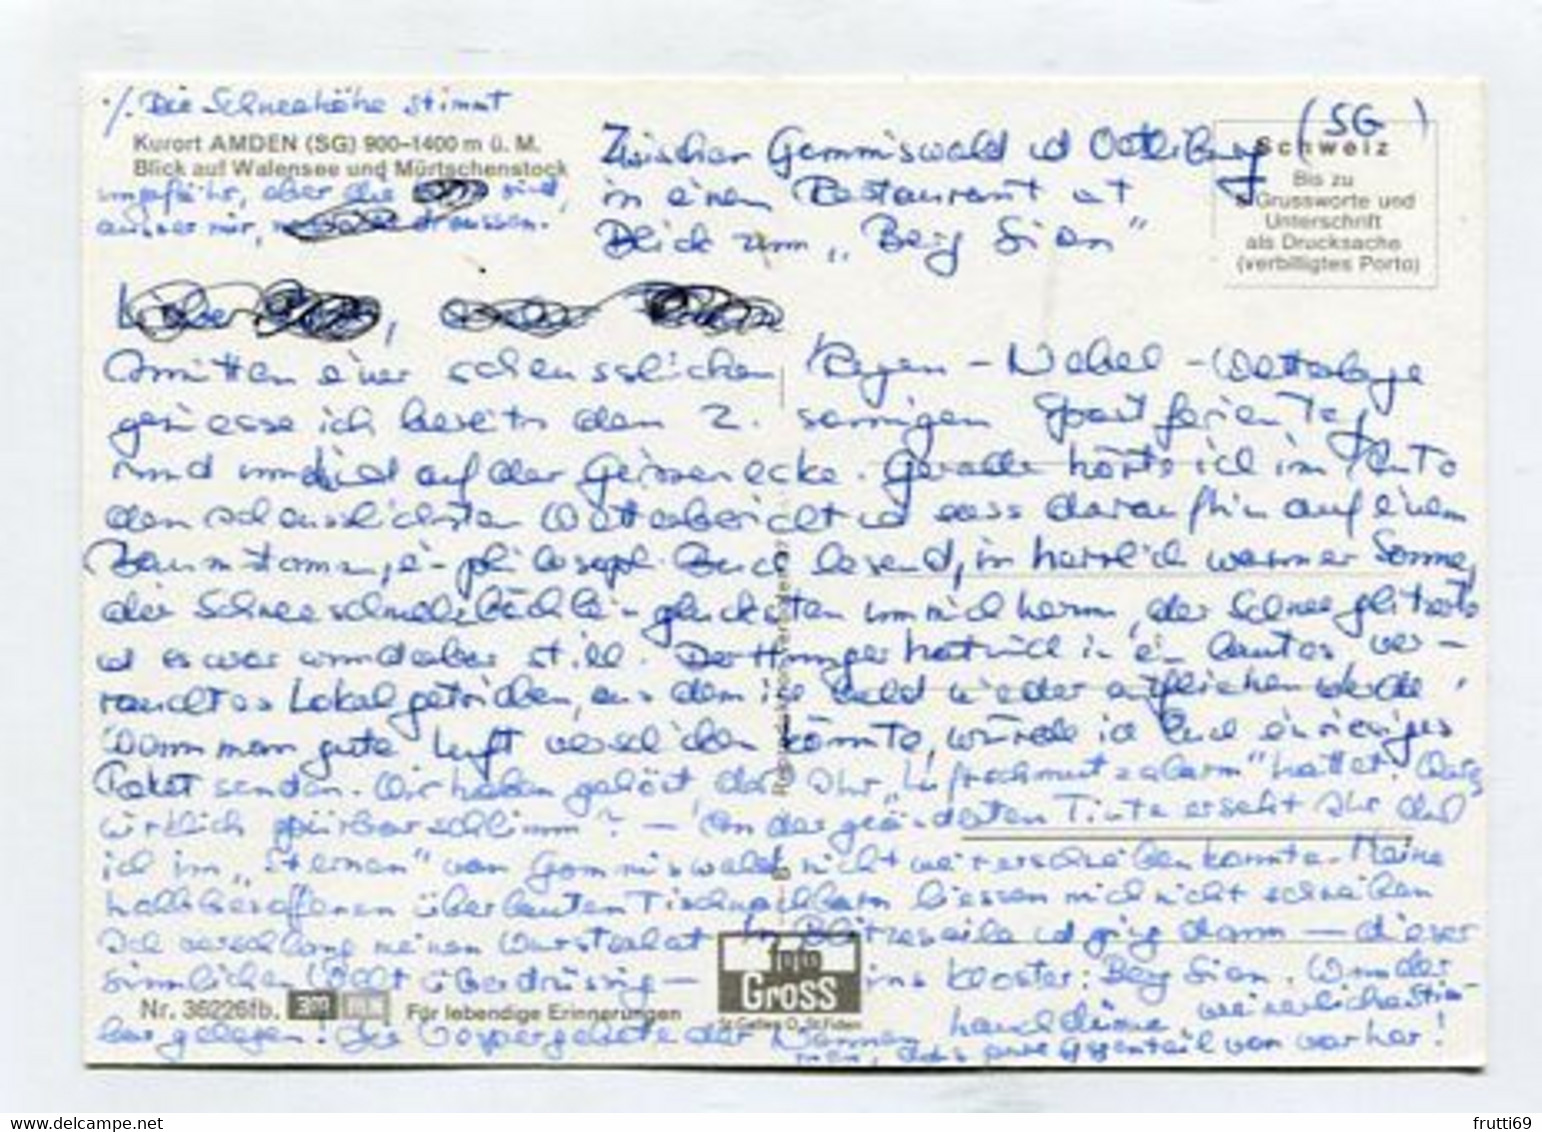 ./. Die Schneehöhe stimmt
Kurort AMDEN (SG) 900–1400 m ü. M.
Blick auf Walensee und Mürtschenstock
ungefähr, aber die sind,
ausser mir, draussen.
(SG)
Zwischen Gommiswald ud
in einem Restaurant et
Blick zum „Berg Sion"
Schweiz
Bis zu
5 Grussworte und
Unterschrift
als Drucksache
(verbilligtes Porto)
Lieber ,
Inmitten einer scheusslichen Regen - Nebel - Wetterlage
geniesse ich bereits den 2. sonnigen Sportferientag
rund um auf der Gerade hörte ich im Auto
den scheusslichsten Wetterbericht ud sass daraufhin auf einem
Baumstamm, e- philosoph. Buch lesend, in herrlich warmer Sonne,
die Schneeschmelzbächlein glucksten um mich herum, der Schnee glitzerte
ud es war wunderbar still. Der Hunger hat mich in ein lautes ver-
rauchtes Lokal getrieben, aus dem ich bald wieder werde.
Wenn man gute Luft verschicken könnte, würde ich Euch ein riesiges
Paket senden. Wir haben gehört, dass Ihr „Luftverschmutz-alarm" hattet. War's
wirklich spürbar schlimm? — An der geänderten Tinte erseht Ihr, dass
ich im „Sternen" von Gommiswald nicht weiterschreiben konnte. Meine
halbbesoffenen überlauten Tischnachbarn liessen mich nicht schreiben
Ich verschlang meinen Wurstsalat in Blitzeseile ud ging dann — dieser
sinnlichen Welt überdrüssig — ins Kloster: Berg Sion. Wunder-
foto
Gross
St. Gallen O, St. Fiden
Nr. 36226fb.
Für lebendige Erinnerungen
bar gelegen! Die Vespergebete der Nonnen, hauchdünne weinerliche Stim-
men, das pure Gegenteil von vorher!
Reproduktion verboten
frutti69